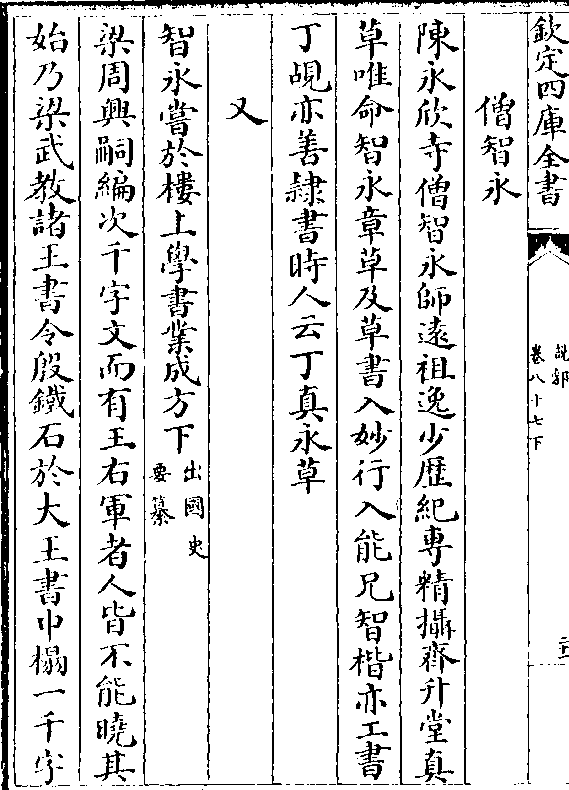 欽定四庫全書
說郛
卷八十七下
二十二
僧智永
陳永欣寺僧智永師遠祖逸少歷紀專精攝齊升堂真
草唯命智永章草及草書入妙行入能兄智楷亦工書
丁覘亦善隷書時人云丁真永草
又
智永嘗於樓上學書業成方下出國史要纂
梁周興嗣編次千字文而有王右軍者人皆不能曉其
始乃梁武教諸王書令殷鐵石於大王書中榻一千字